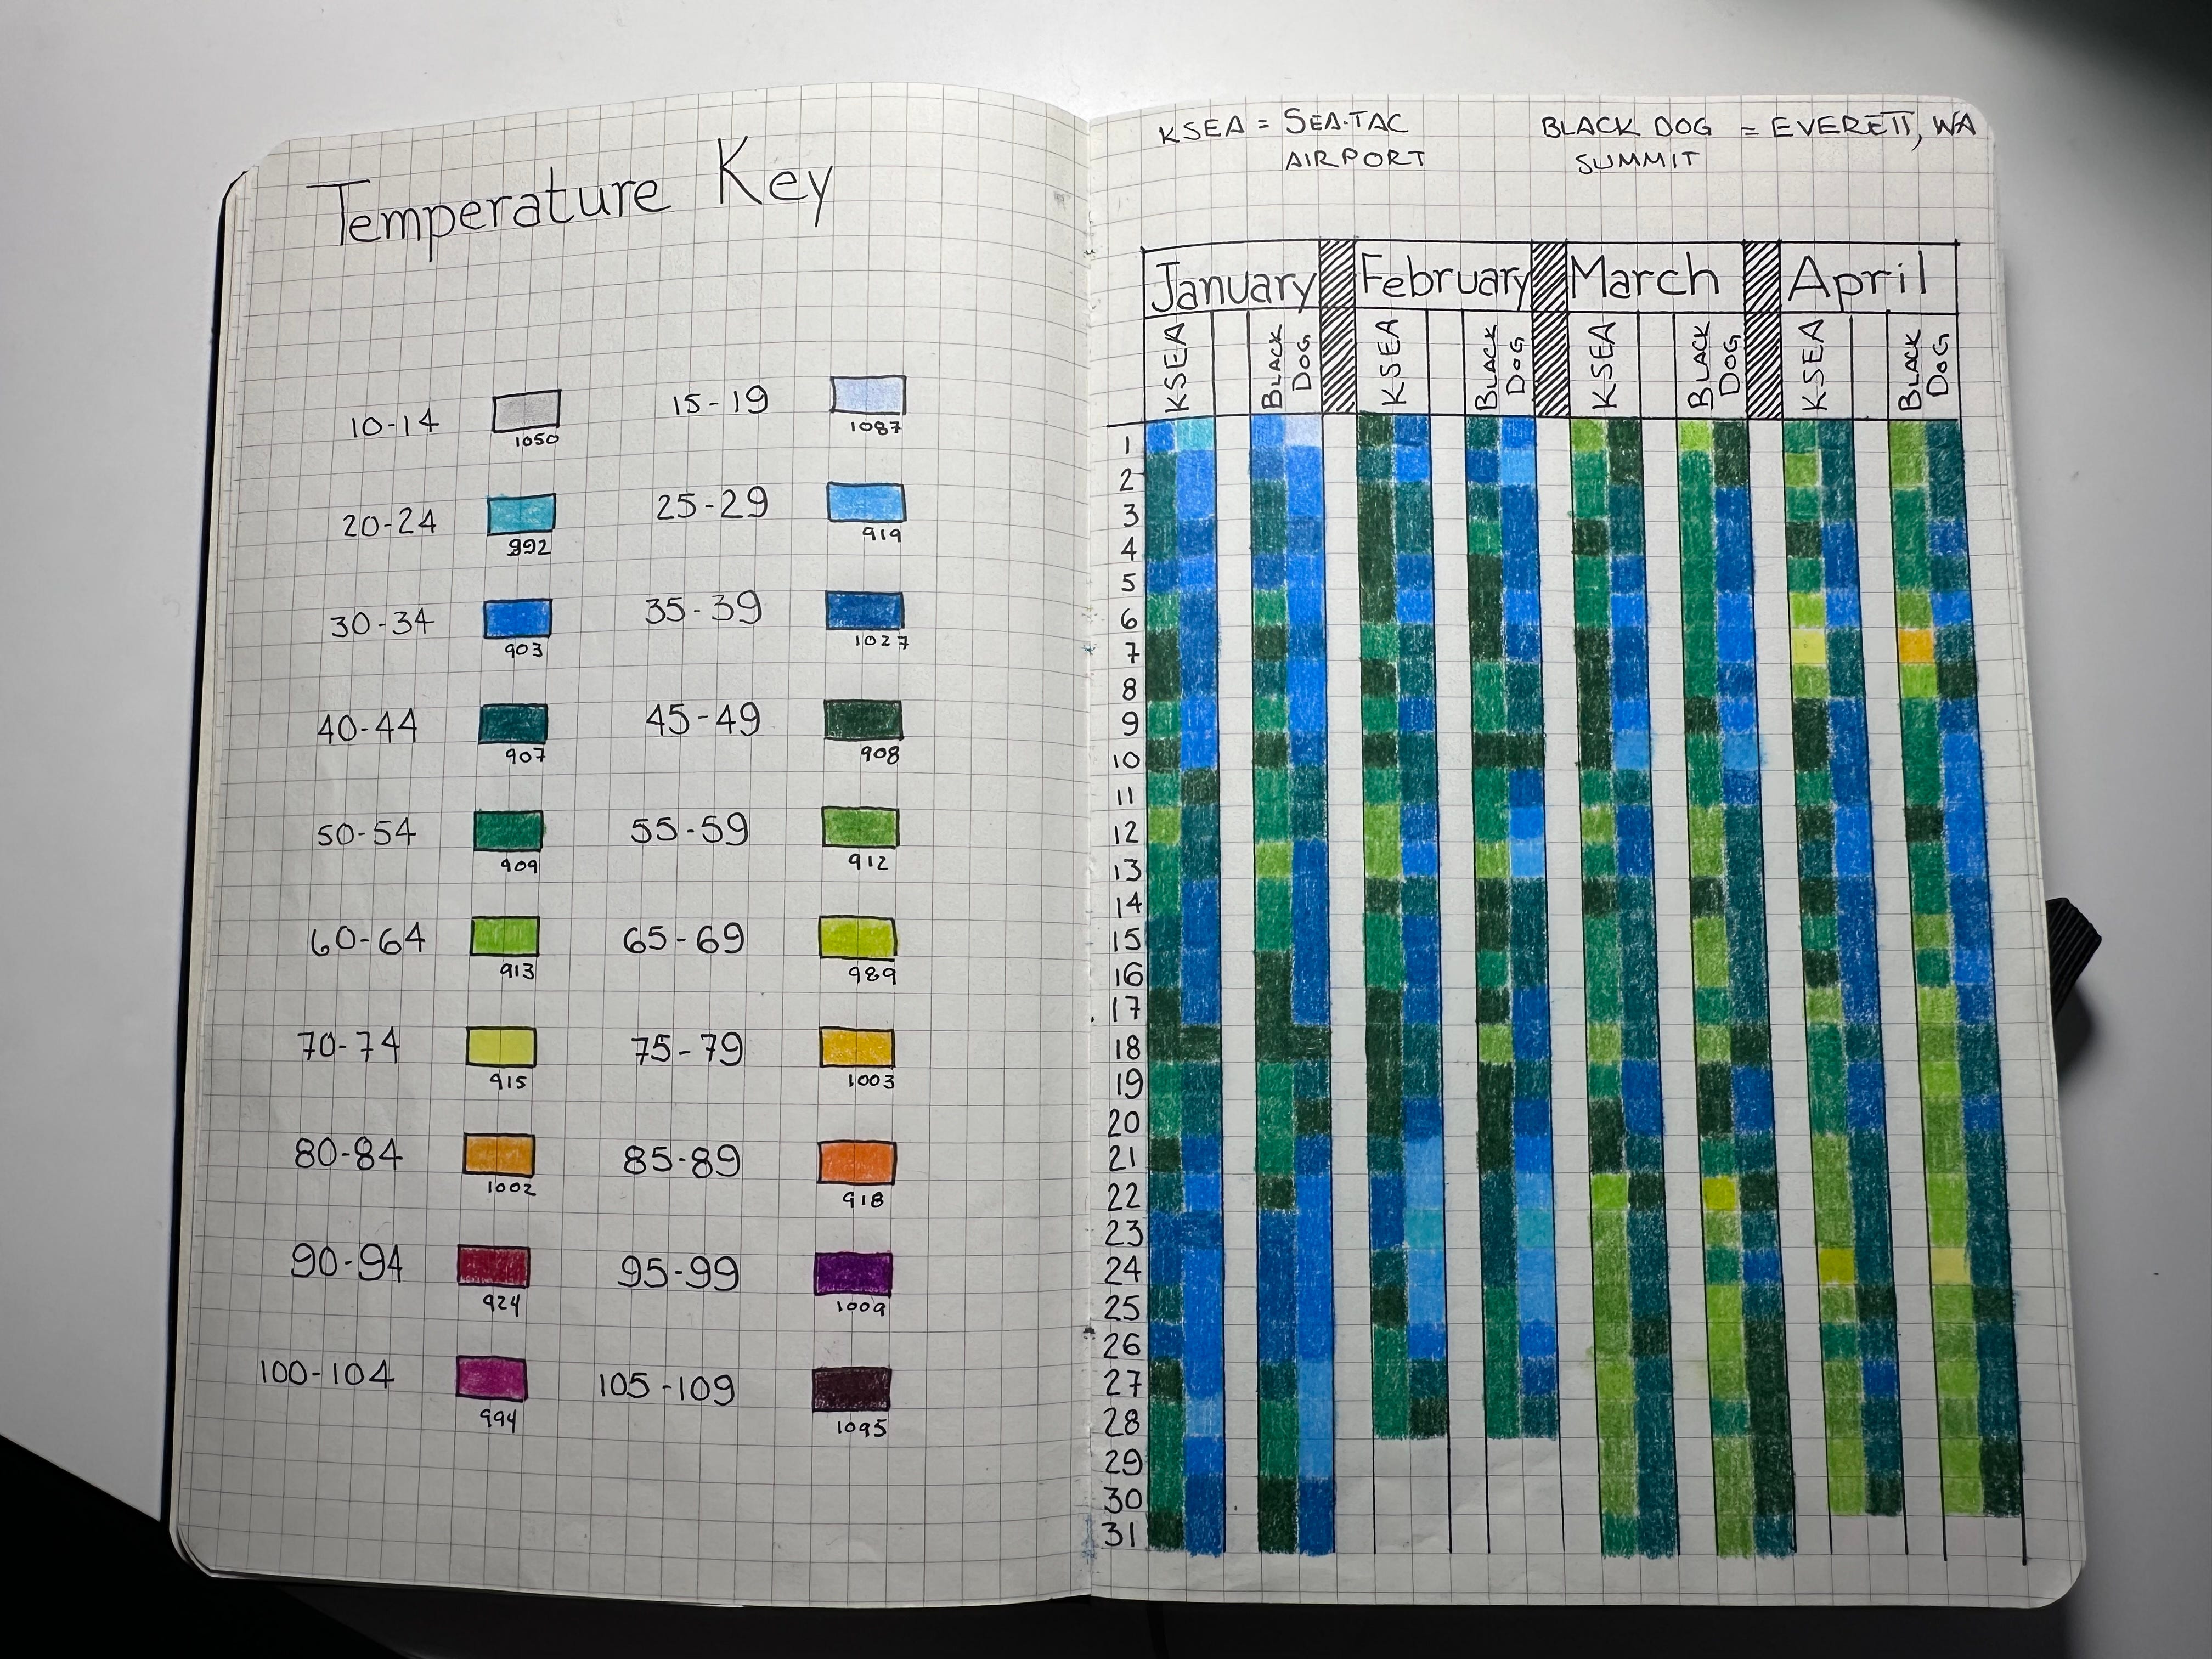 Temperature Key
10-14 1050 15-19 1087
20-24 992 25-29 919
30-34 903 35-39 1027
40-44 907 45-49 908
50-54 909 55-59 912
60-64 913 65-69 989
70-74 915 75-79 1003
80-84 1002 85-89 918
90-94 924 95-99 1009
100-104 994 105-109 1095
KSEA = SEA-TAC AIRPORT
BLACK DOG SUMMIT = EVERETT, WA
January February March April
KSEA BLACK DOG KSEA BLACK DOG KSEA BLACK DOG KSEA BLACK DOG
1
2
3
4
5
6
7
8
9
10
11
12
13
14
15
16
17
18
19
20
21
22
23
24
25
26
27
28
29
30
31